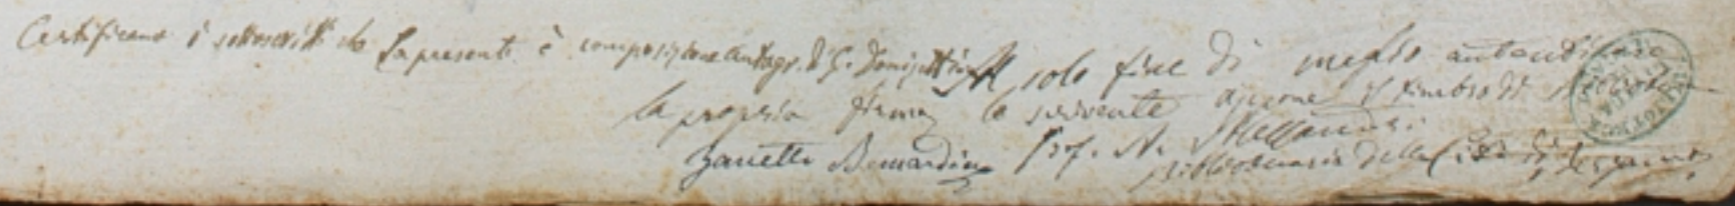 Certificano i sottoscritti che la presente è composizione autogr. di G. Donizetti. Al solo fine di meglio autenticare
la propria firma lo scrivente appone il timbro di
Zanetti Bernardino Prof. A.
bibliotecario della Città di Bergamo